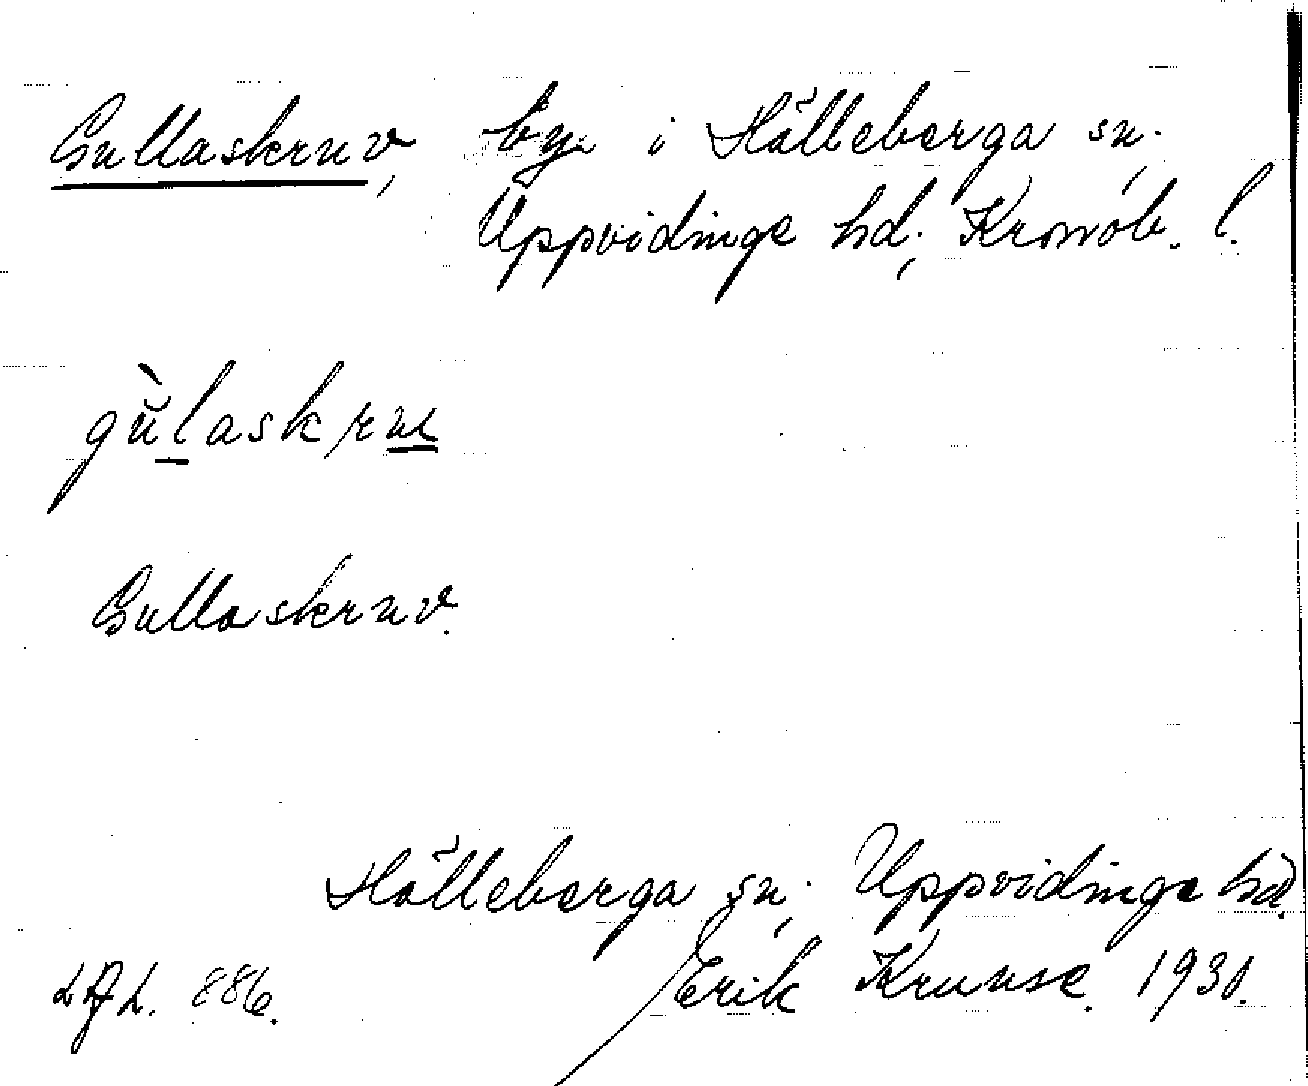 Gullaskruv, by i Hälleberga sn.,
Uppvidinge hd., Kronob. l.
gùlaskru
Gullaskruv.
Hälleberga sn., Uppvidinge hd.
L.A.L. 886. Erik Kruuse. 1931.